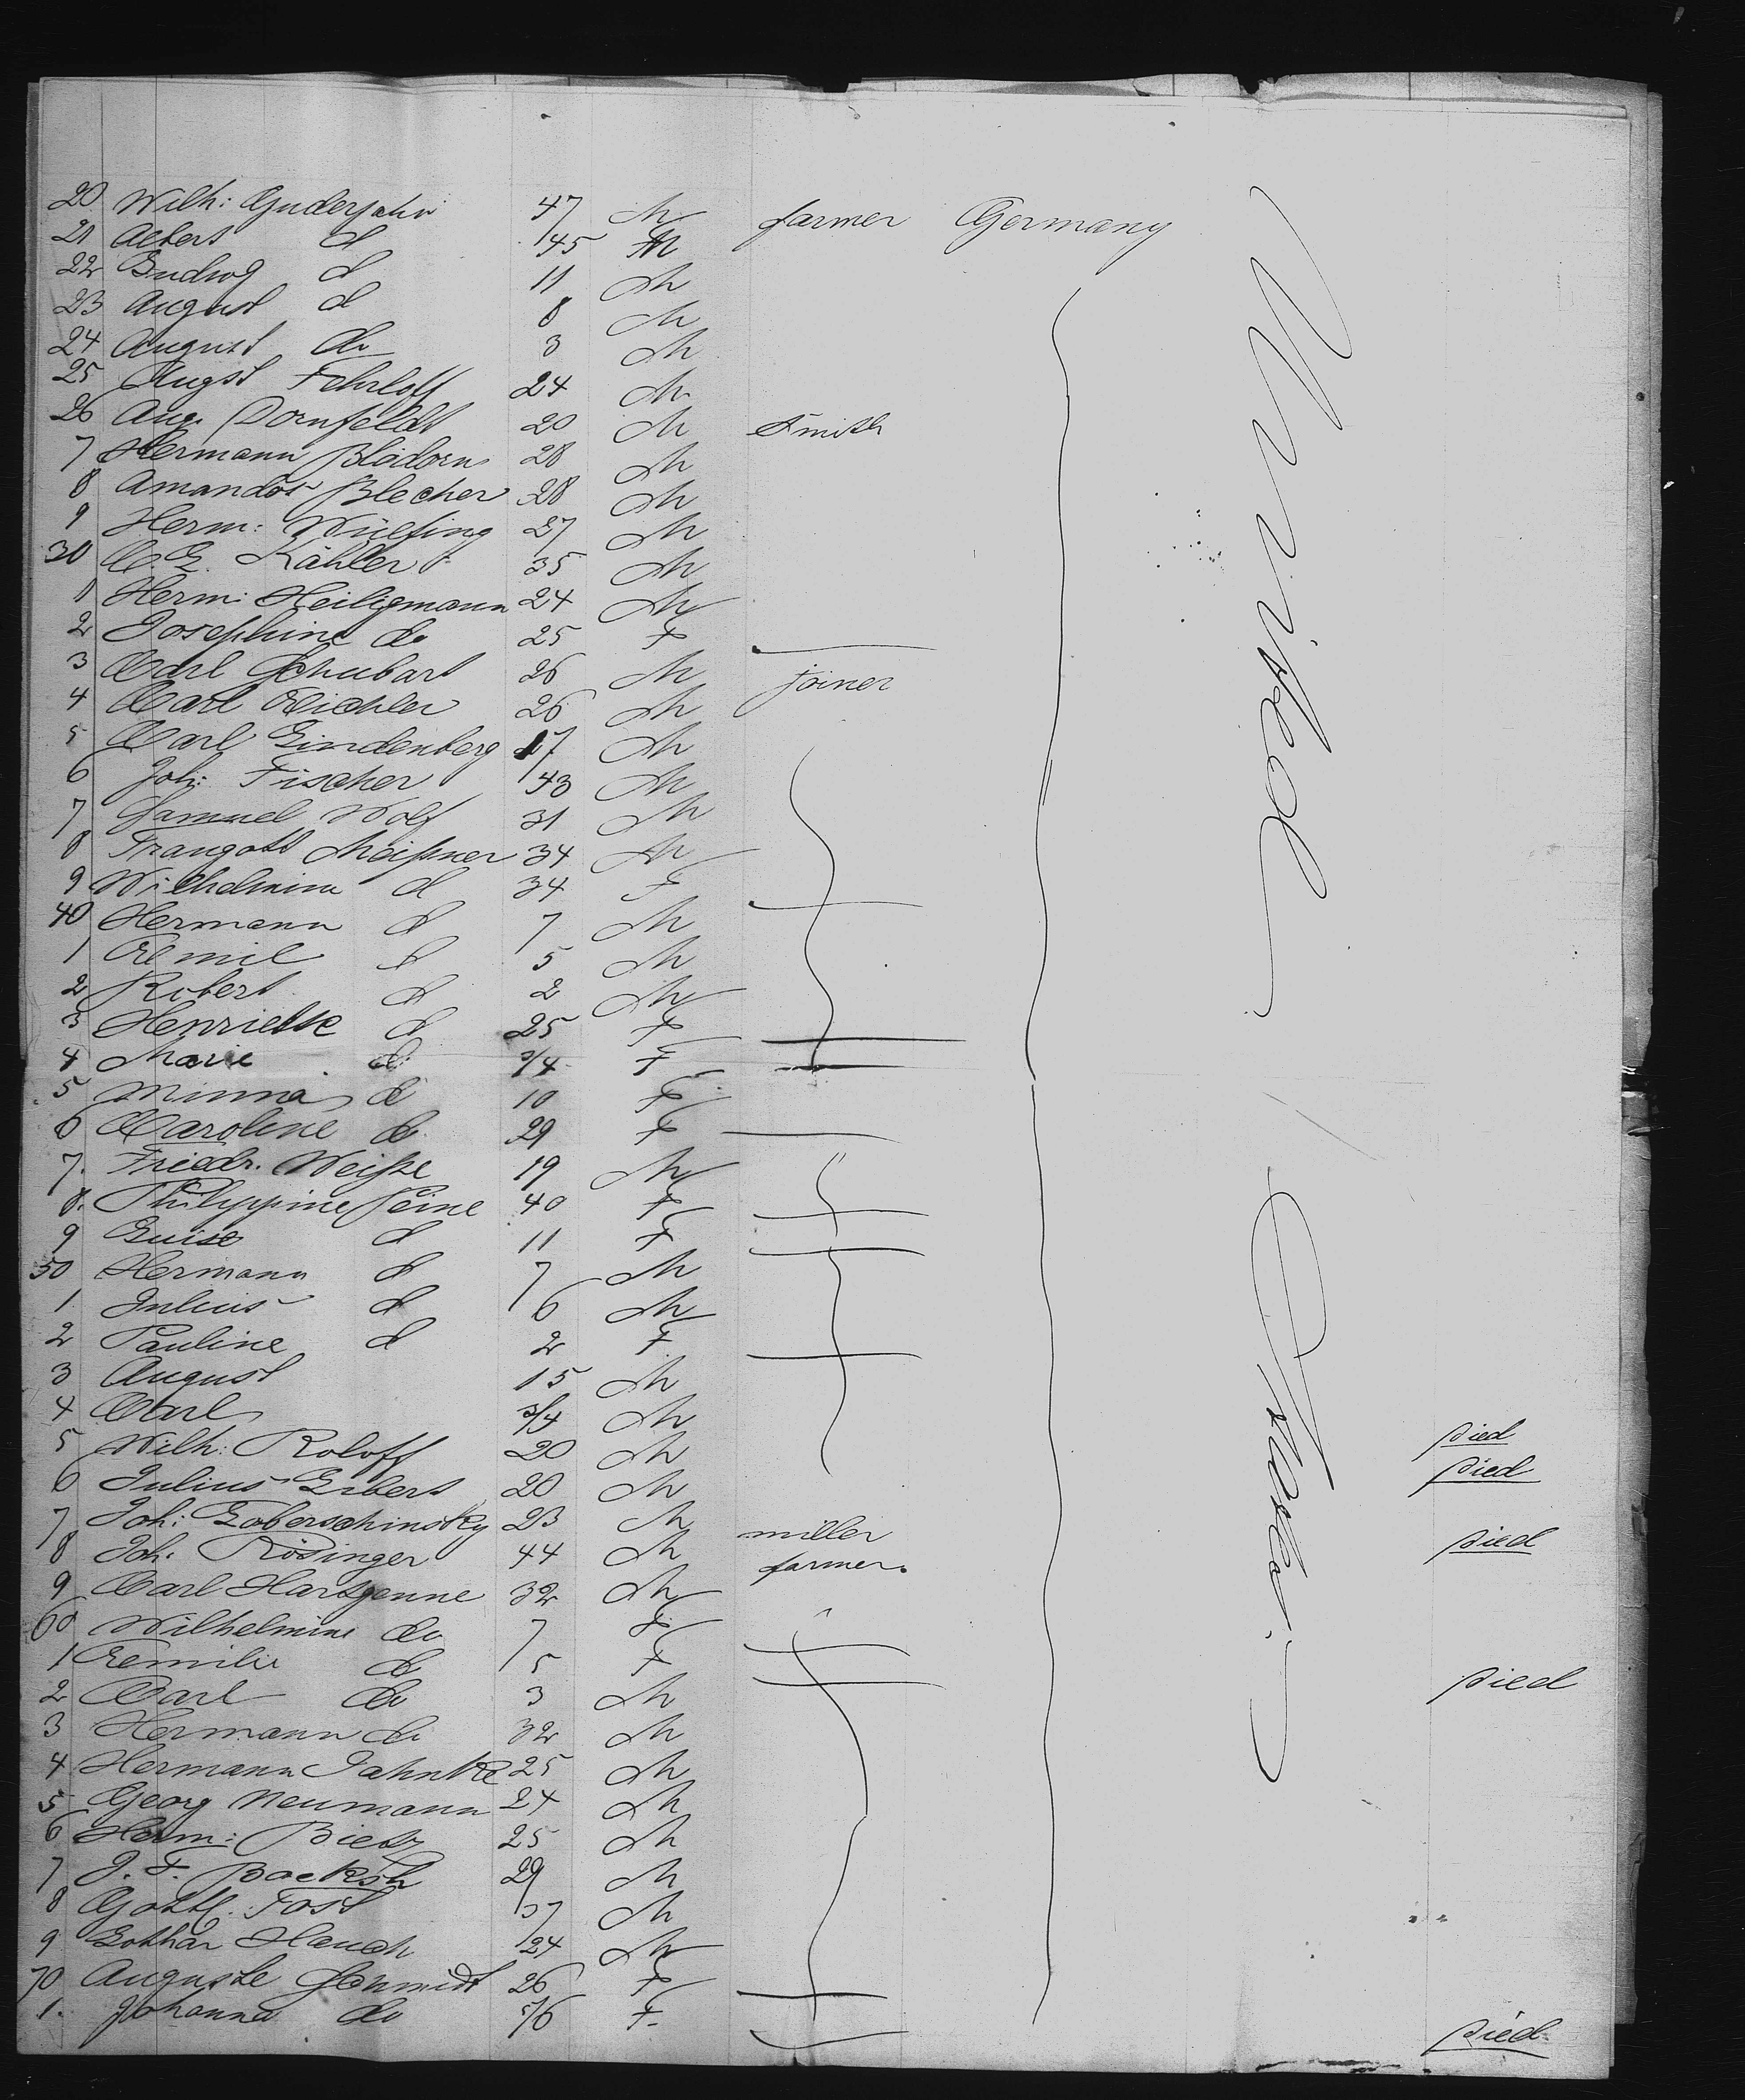 20 Wilh: Guderjahn 47 M farmer Germany
21 Albert d 45 M
22 Ludwg d 11 M
23 August d 8 M
24 August do 3 M
25 Augst Fehrloff 24 M
26 Aug. Dornfeldt 20 M Smith
7 Hermann Blödorn 28 M
8 Amandos Blecher 28 M
9 Herm: Wülfing 27 M
30 C. L. Kähler 35 M
1 Herm: Heiligmann 24 M
2 Josephine do 25 F
3 Carl Schubart 26 M joiner
4 Carl Eichler 26 M
5 Carl Lindenberg 17 M
6 Joh: Fischer 43 M
7 Samuel Wolf 31 M
8 Traugott Meißner 34 M
9 Wilhelmine d 34 F
40 Hermann d 7 M
1 Emil d 5 M
2 Robert d 2 M
3 Henriette d 25 F
4 Marie d 3/4 F
5 Minna d 10 F
6 Caroline do 29 F
7. Friedr. Weiße 19 M
8. Philippine Peine 40 F
9 Luise d 11 F
50 Hermann d 7 M
1 Julius d 6 M
2 Pauline d 2 F
3 August 15 M
4 Carl 3/4 M died
5 Wilh: Roloff 20 M died
6 Julius Libert 20 M
7 Joh: Loberschinsky 23 M miller died
8 Joh. Rösinger 44 M farmer.
9 Carl Hartgenne 32 M
60 Wilhelmine do 7 F
1 Emilie do 5 F died
2 Carl do 3 M
3 Hermann do 32 M
4 Hermann Jahnke 25 M
5 Georg Neumann 24 M
6 Herm: Bietz 25 M
7 J. F. Backsh 29 M
8 Gottl. Fost 37 M
9 Lothar Hauch 24 M
70 Auguste Schmidt 26 F
1. Johanna do 5/6 F. died
United States